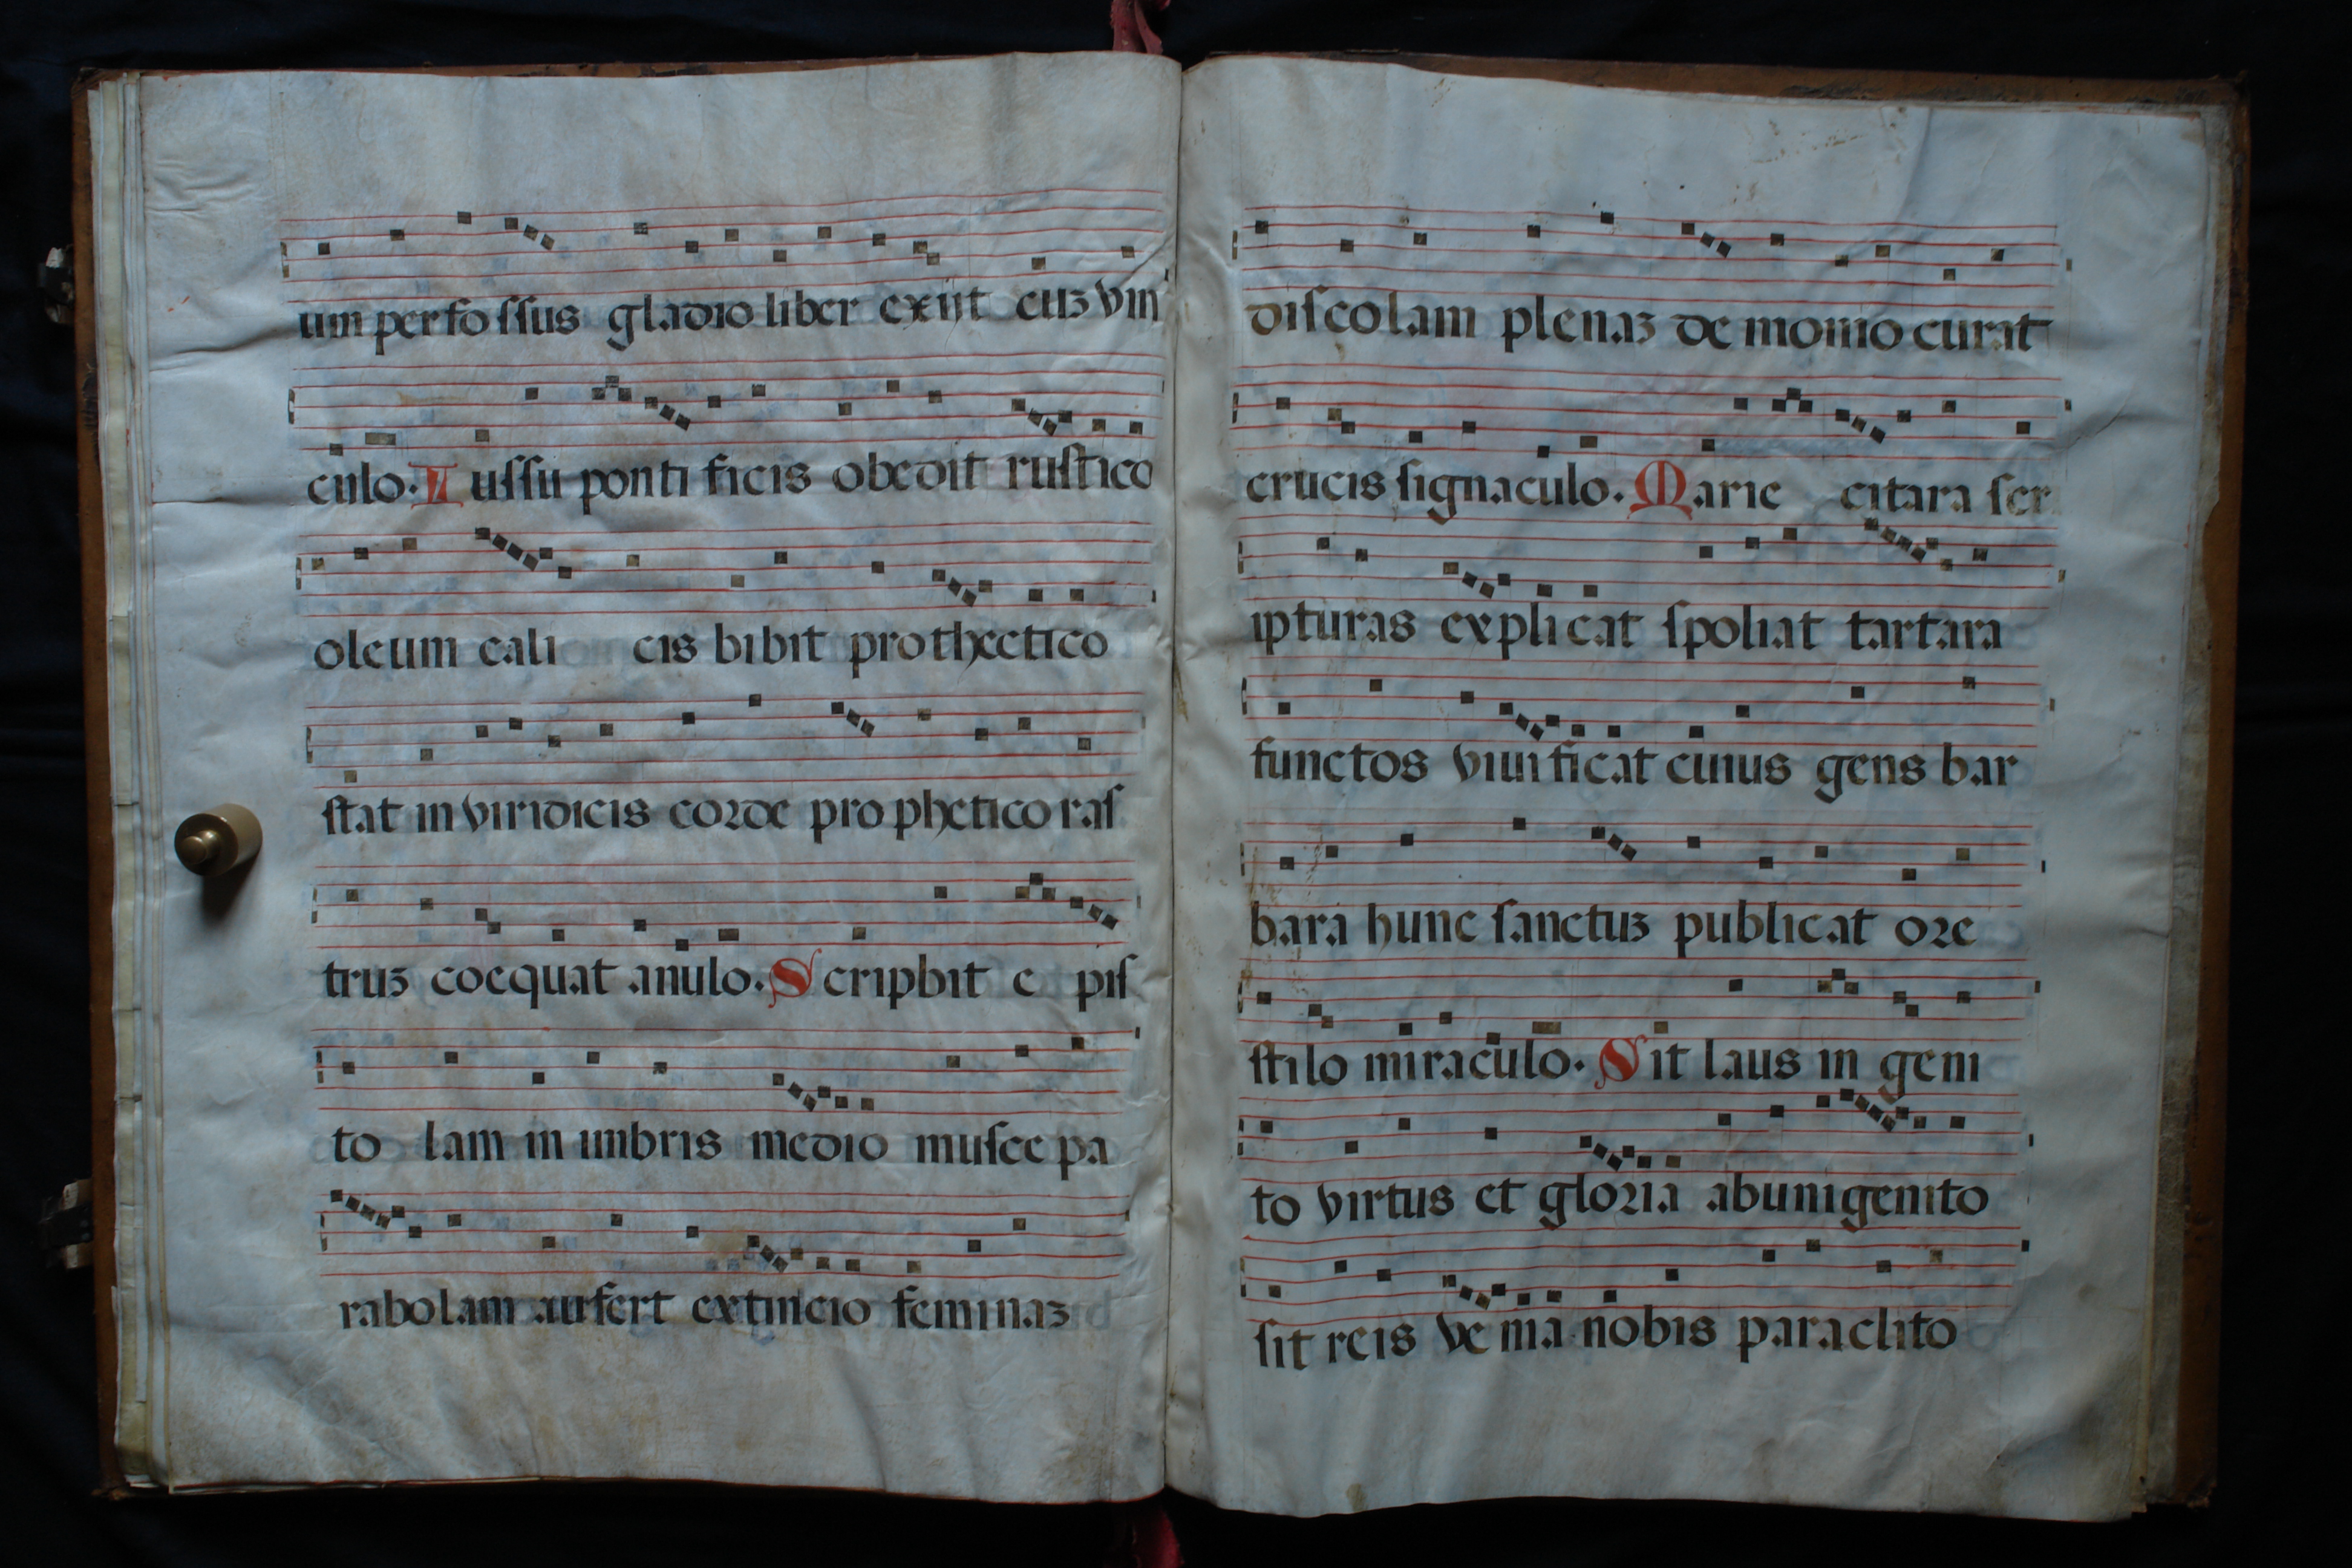 um perfossus gladio liber exiit cuʒ vin
culo. Iussu pontificis obedit rustico
oleum calicis bibit prothetico
stat in viridicis corde prophetico ras
truʒ coequat anulo. Scripbit epis
tolam in umbris medio musce pa
rabolam aufert extincio feminaʒ
discolam plenaʒ demonio curat
crucis signaculo. Marie citara scr
ipturas explicat spoliat tartara
functos viuificat cuius gens bar
bara hunc sanctuʒ publicat ore
stilo miraculo. Sit laus in geni
to virtus et gloria ab unigenito
sit reis venia nobis paraclito